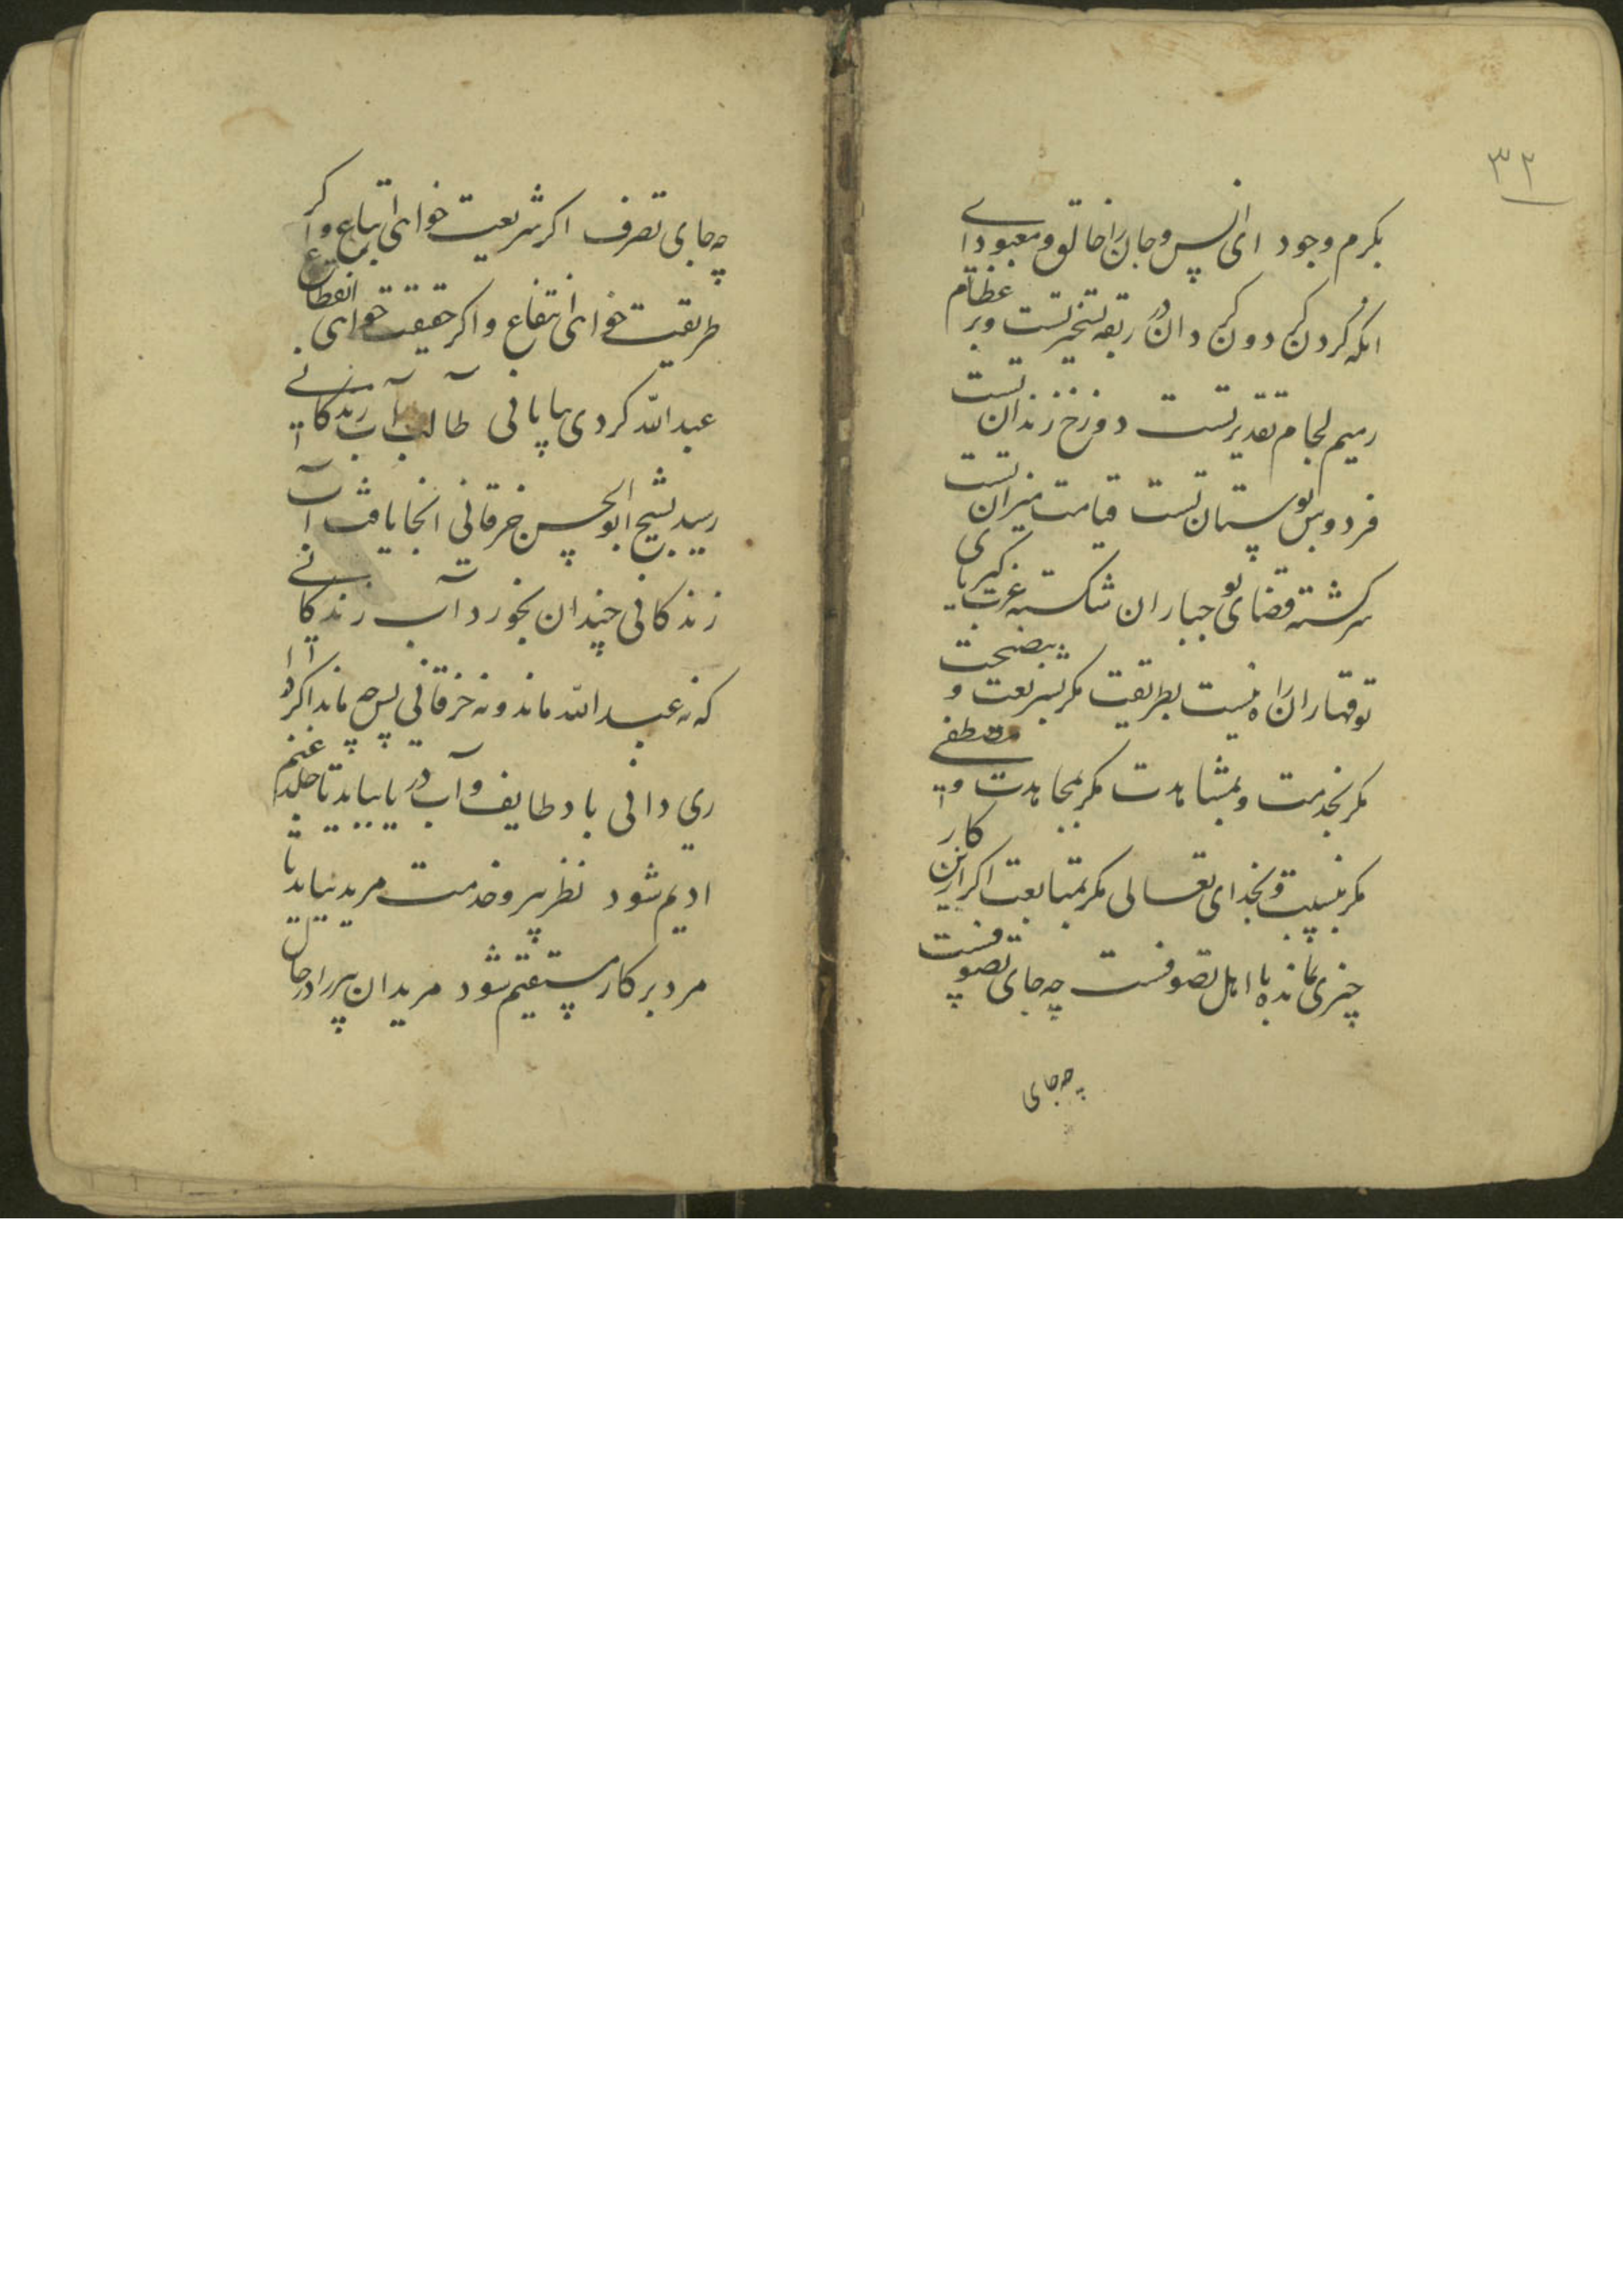 ۳۲
بکرم وجود ای انس و جان را خالق و معبود ای
انکه کردن کردون کردان در ربقه تسخیر تست و بر عظام
رمیم لجام تقدیر تست دوزخ زندان تست
فردوس بوستان تست قیامت میزان تست
سرکشته قضای تو جباران شکسته عزت کبریای
تو قهاران را راه نیست بطریقت مکر بشریعت و بنصیحت
مکر بخدمت و بمشاهدت مکر بمجاهدت و بمصطفی
مکر بنسبت و بخدای تعالی مکر بمتابعت اکر ازین کار
چیزی نمانده با اهل تصوفست چه جای تصوفست
چه جای
چه جای تصرف اکر شریعت خواهی اتباع و اکر
طریقت خواهی انتفاع و اکر حقیقت خواهی انقطاع
عبدالله کردی بیابانی طالب آب زندکانی
رسید بشیخ ابوالحسن خرقانی انجا یافت آب
زندکانی چندان بخورد آب زندکانی
که نه عبدالله ماند و نه خرقانی پس چه ماند اکر
ری دانی باد طایف و آب دریا بباید تا جلد غنم
ادیم شود نظر پیر و خدمت مرید بباید تا
مرد بر کار مستقیم شود مریدان پیر را در حال